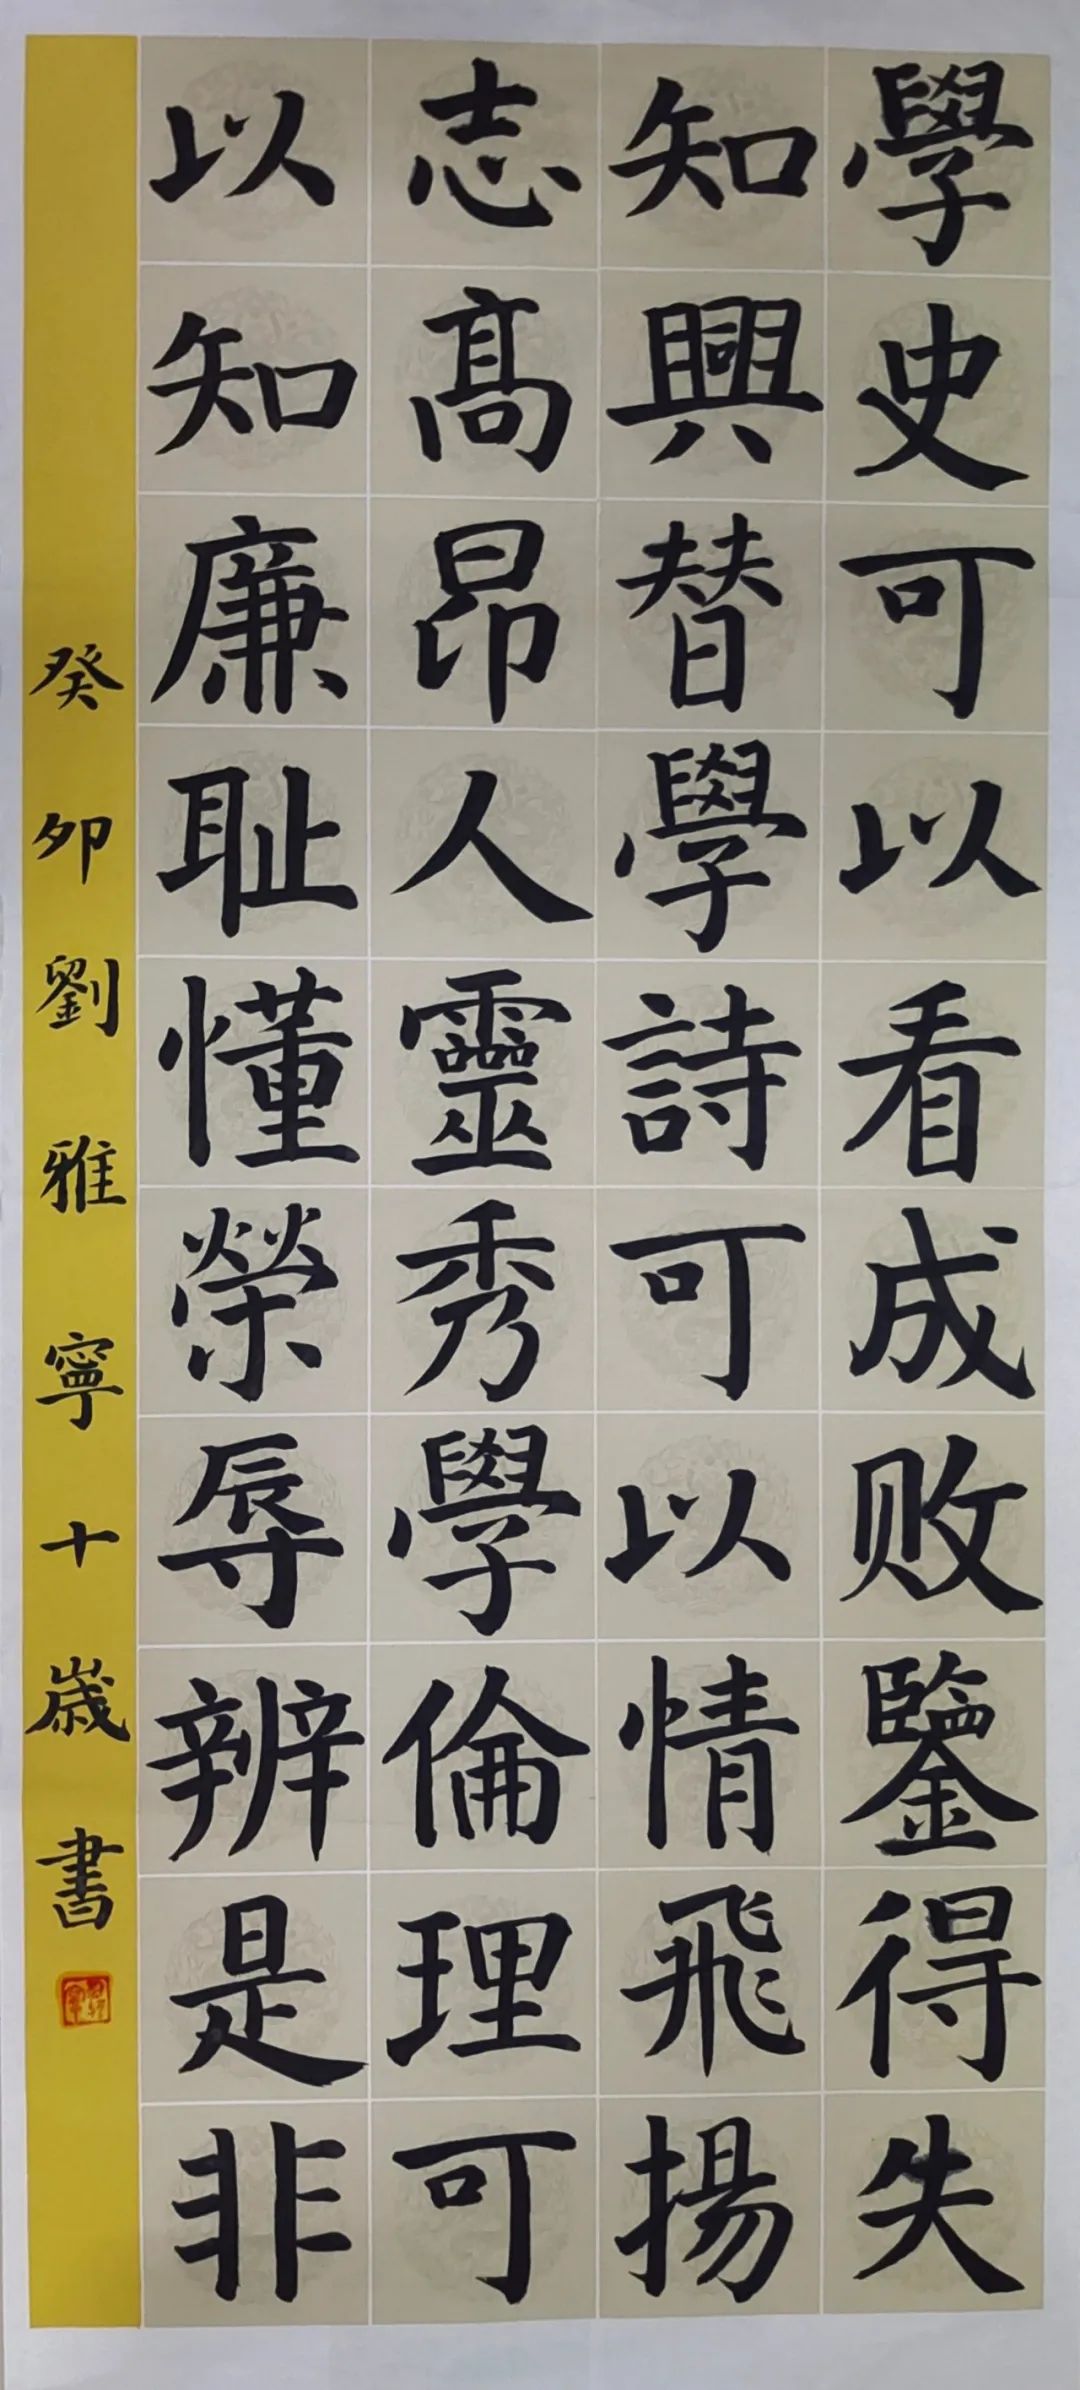 學史可以看成败鑒得失
知興替學詩可以情飛揚
志高昂人靈秀學倫理可
以知廉耻懂榮辱辨是非
癸卯劉雅寧十歲書